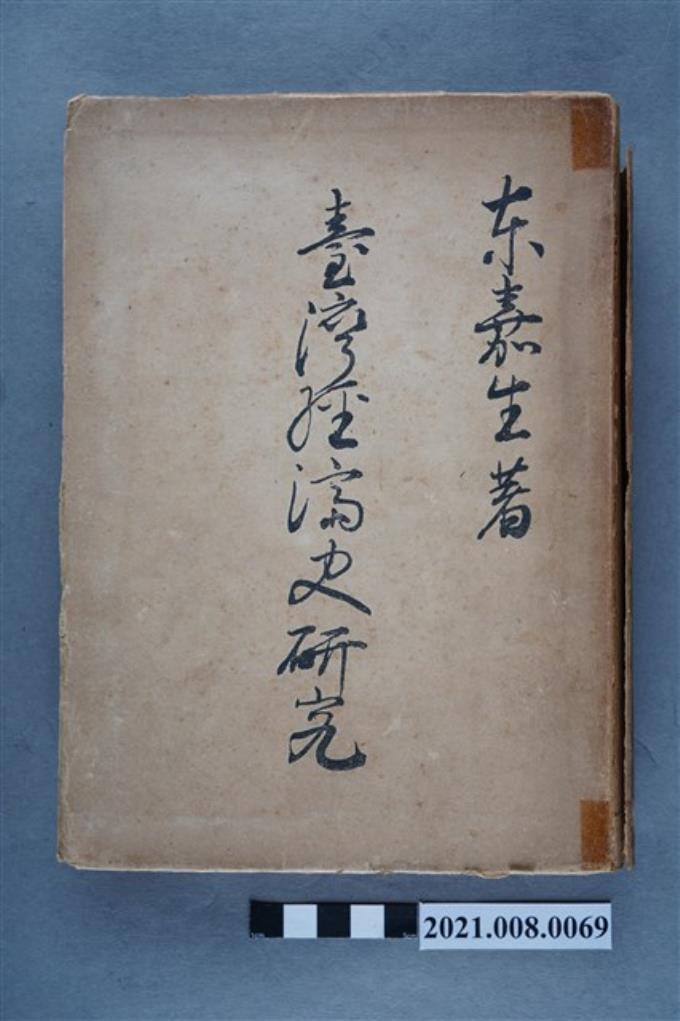 东嘉生著
臺灣經濟史研究
2021.008.0069